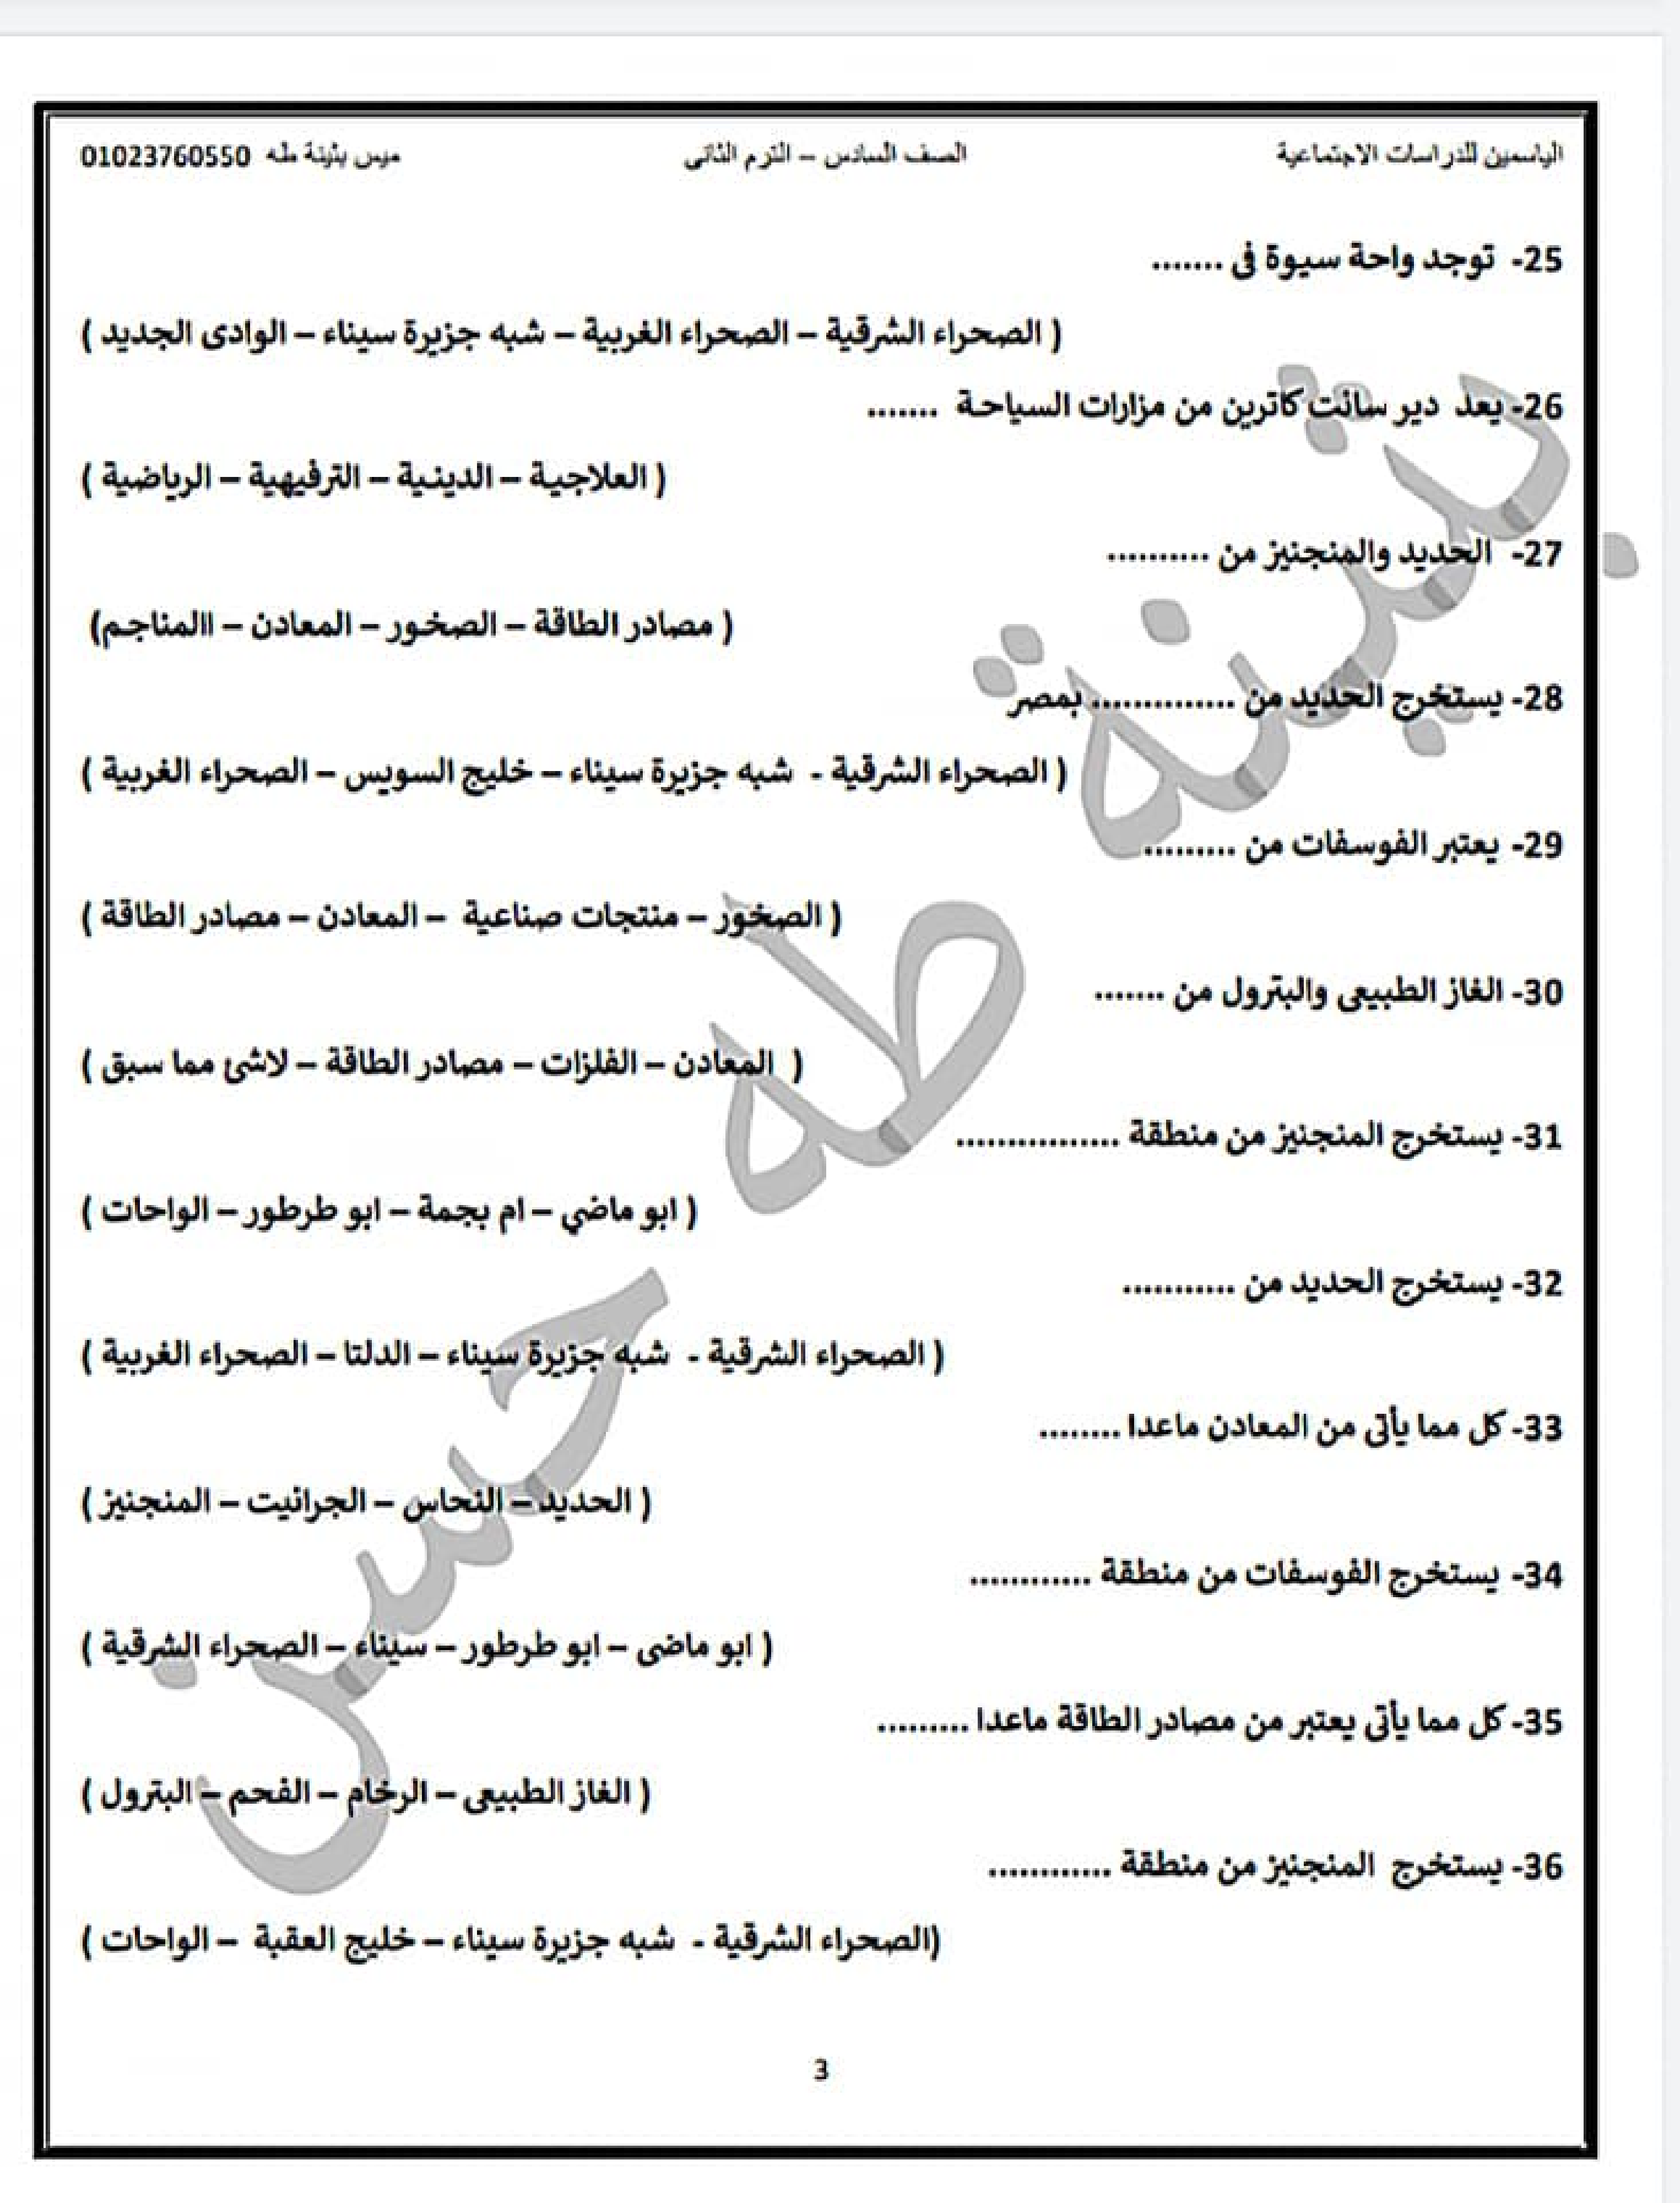 الياسمين للدراسات الاجتماعية الصف السادس – الترم الثانى ميس بثينة طه 01023760550
25- توجد واحة سيوة فى .......
( الصحراء الشرقية – الصحراء الغربية – شبه جزيرة سيناء – الوادى الجديد )
26- يعد دير سانت كاترين من مزارات السياحة .......
( العلاجية – الدينية – الترفيهية – الرياضية )
27- الحديد والمنجنيز من ..........
( مصادر الطاقة – الصخور – المعادن – االمناجم)
28- يستخرج الحديد من .............. بمصر
( الصحراء الشرقية - شبه جزيرة سيناء – خليج السويس – الصحراء الغربية )
29- يعتبر الفوسفات من .........
( الصخور – منتجات صناعية – المعادن – مصادر الطاقة )
30- الغاز الطبيعى والبترول من .......
( المعادن – الفلزات – مصادر الطاقة – لاشئ مما سبق )
31- يستخرج المنجنيز من منطقة ................
( ابو ماضي – ام بجمة – ابو طرطور – الواحات )
32- يستخرج الحديد من ...........
( الصحراء الشرقية - شبه جزيرة سيناء – الدلتا – الصحراء الغربية )
33- كل مما يأتى من المعادن ماعدا ........
( الحديد – النحاس – الجرانيت – المنجنيز )
34- يستخرج الفوسفات من منطقة ............
( ابو ماضى – ابو طرطور – سيناء – الصحراء الشرقية )
35- كل مما يأتى يعتبر من مصادر الطاقة ماعدا .........
( الغاز الطبيعى – الرخام – الفحم – البترول )
36- يستخرج المنجنيز من منطقة ............
(الصحراء الشرقية - شبه جزيرة سيناء – خليج العقبة – الواحات )
3
بثينة طه حسن